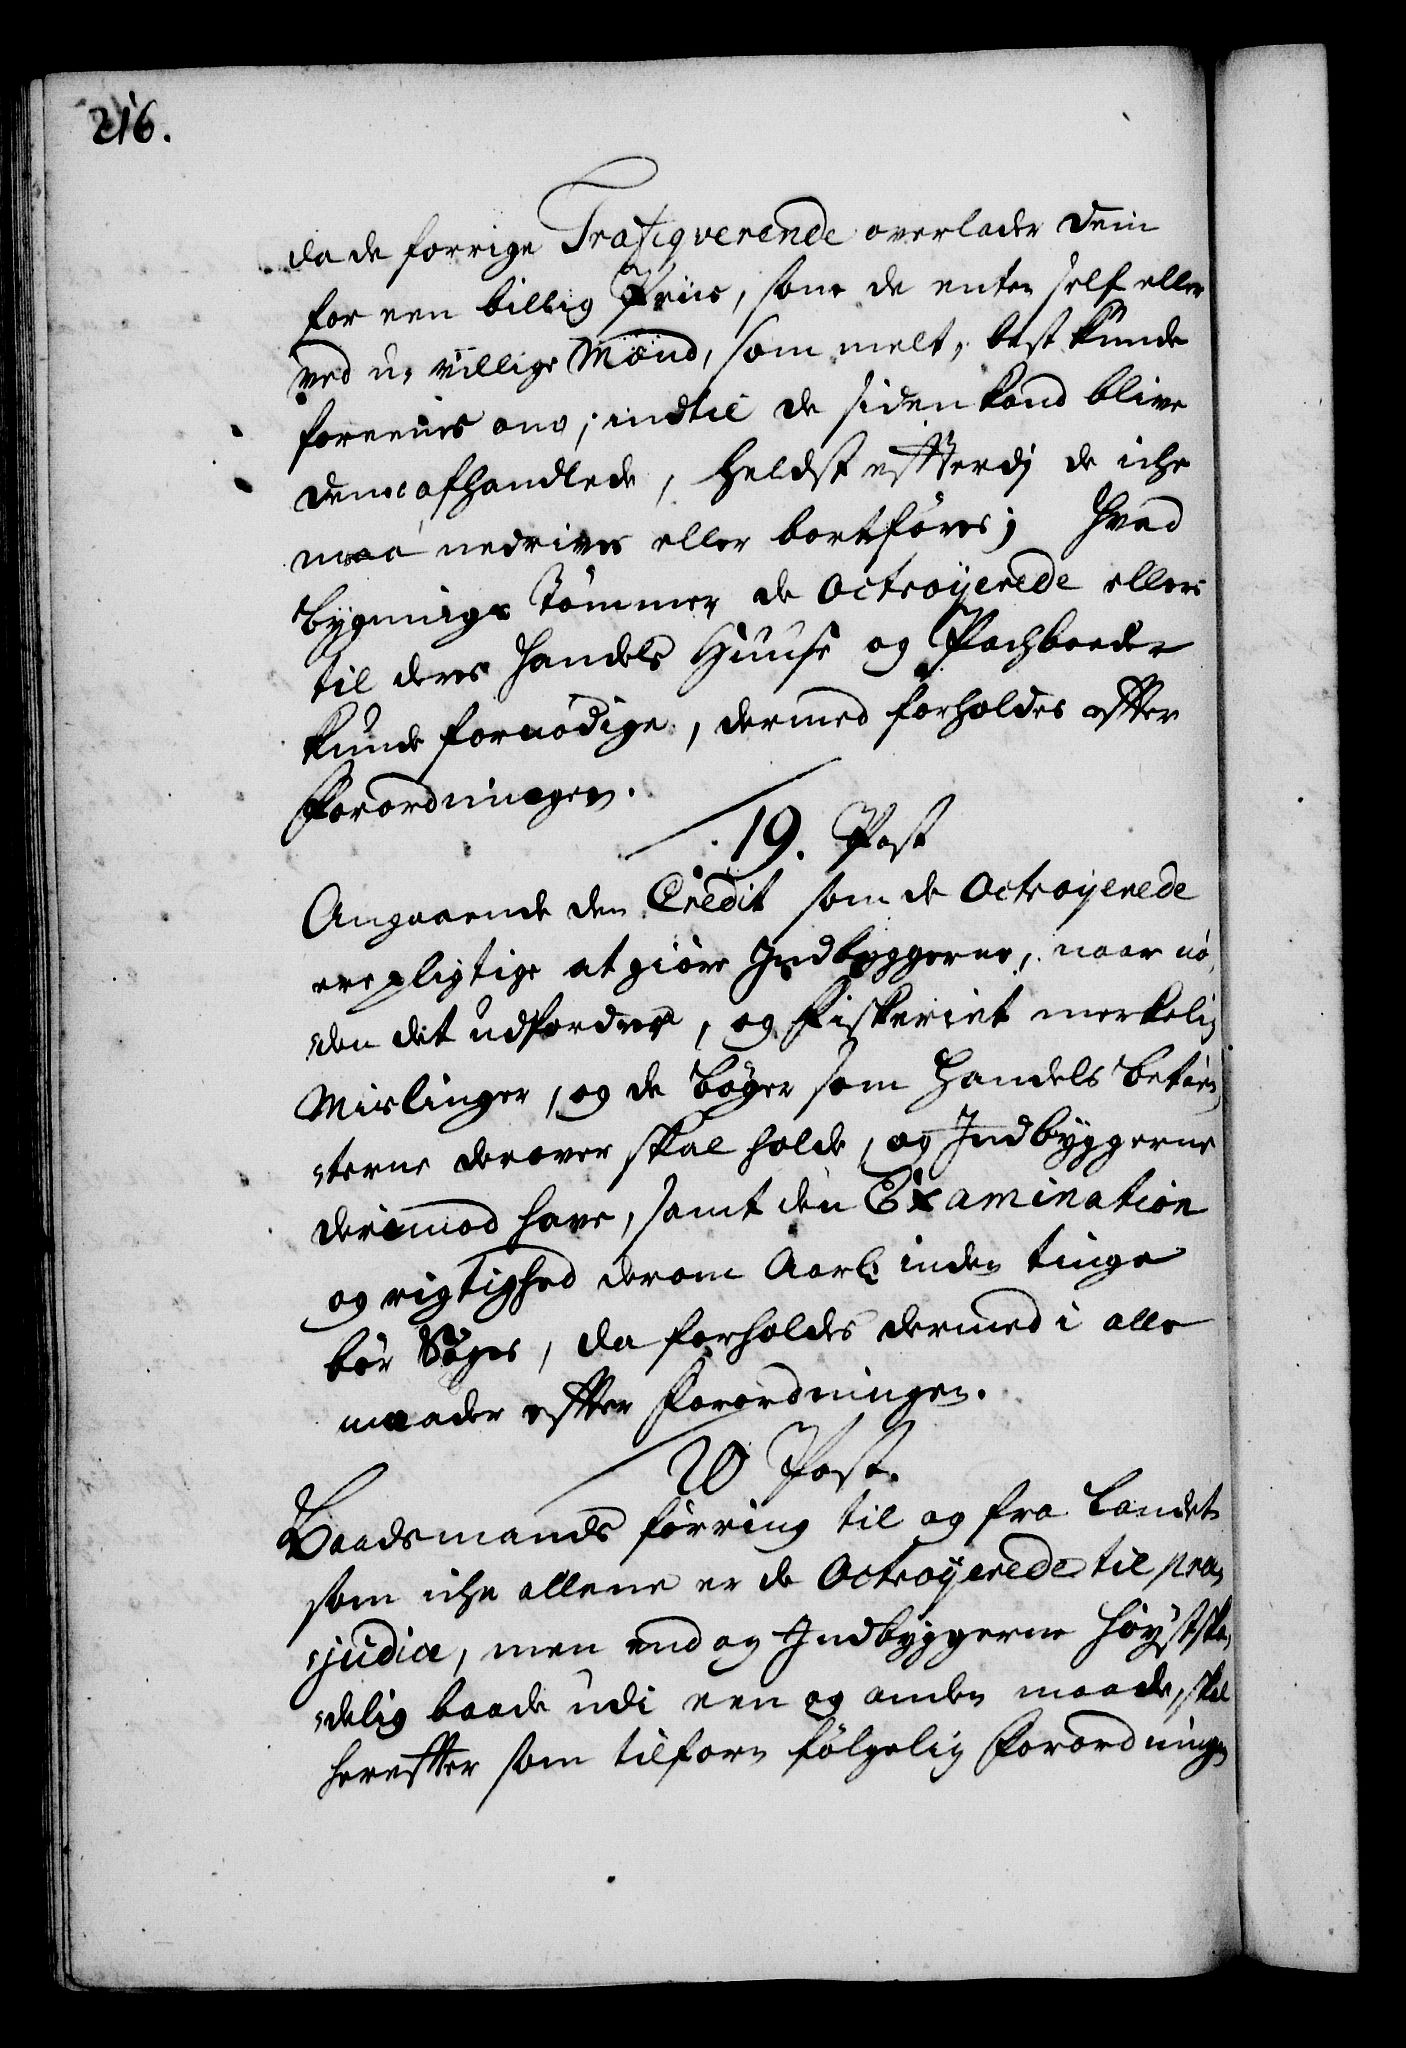 216.
da de forrige Trafiqverende overlader dem
for een billig Priis, som de enten self eller
ved u-villige Mænd, som melt, best kunde
foreenes om, indtil de siden kand blive
dem afhandlede, heldst effterdj de iche
maa nedrives eller bortføres; Hvad
Bygnings Tømmer de Octroyerede ellers
til deres Handels Huuse og Pachboeder
kunde fornødige, dermed forholdes effter
Forordningen.
19. Post
Angaaende den Credit som de Octroyerede
ere pligtige at giøre Indbyggerne, naar nø,
,den det udfordrer, og Fiskeriet merkelig
Mislinger, og de Bøger som Handels betien,
,terne derover skal holde, og Indbyggerne
derimod have, samt den Examination
og rigtighed derom Aarl: inden tinge
bør Søges, da forholdes dermed i alle
maader effter Forordningen.
20 Post.
Baadsmands føring til og fra Landet
som iche allene er de Octroyerede til præ,
,judice, men endog Indbyggerne høyst ska,
,delig baade udi een og anden maade, skal
hereffter som tilforn følgelig Forordningen